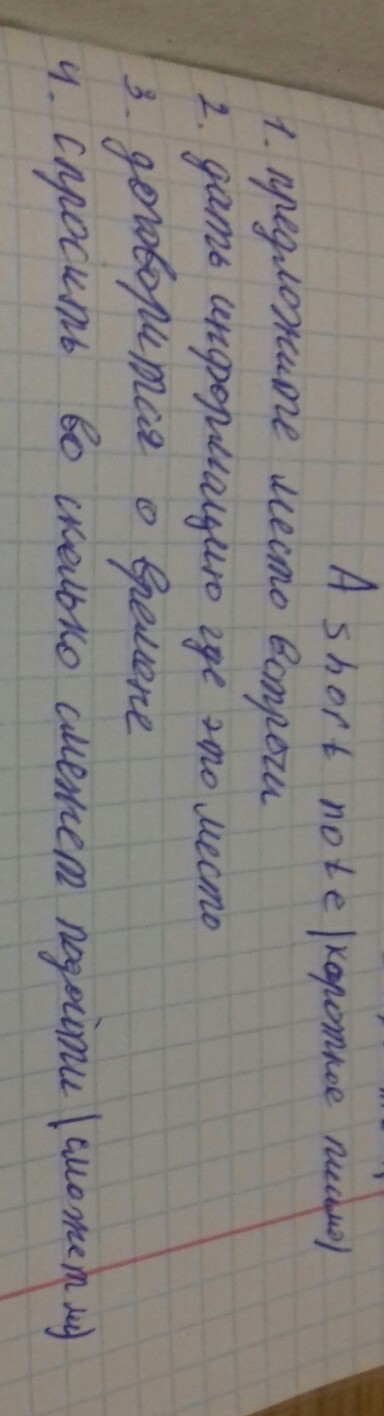 A short note (короткое письмо)
1. предложите место встречи
2. дать информацию где это место
3. договорится о времене
4. спросить во сколько сможет подойти (сможет ли)